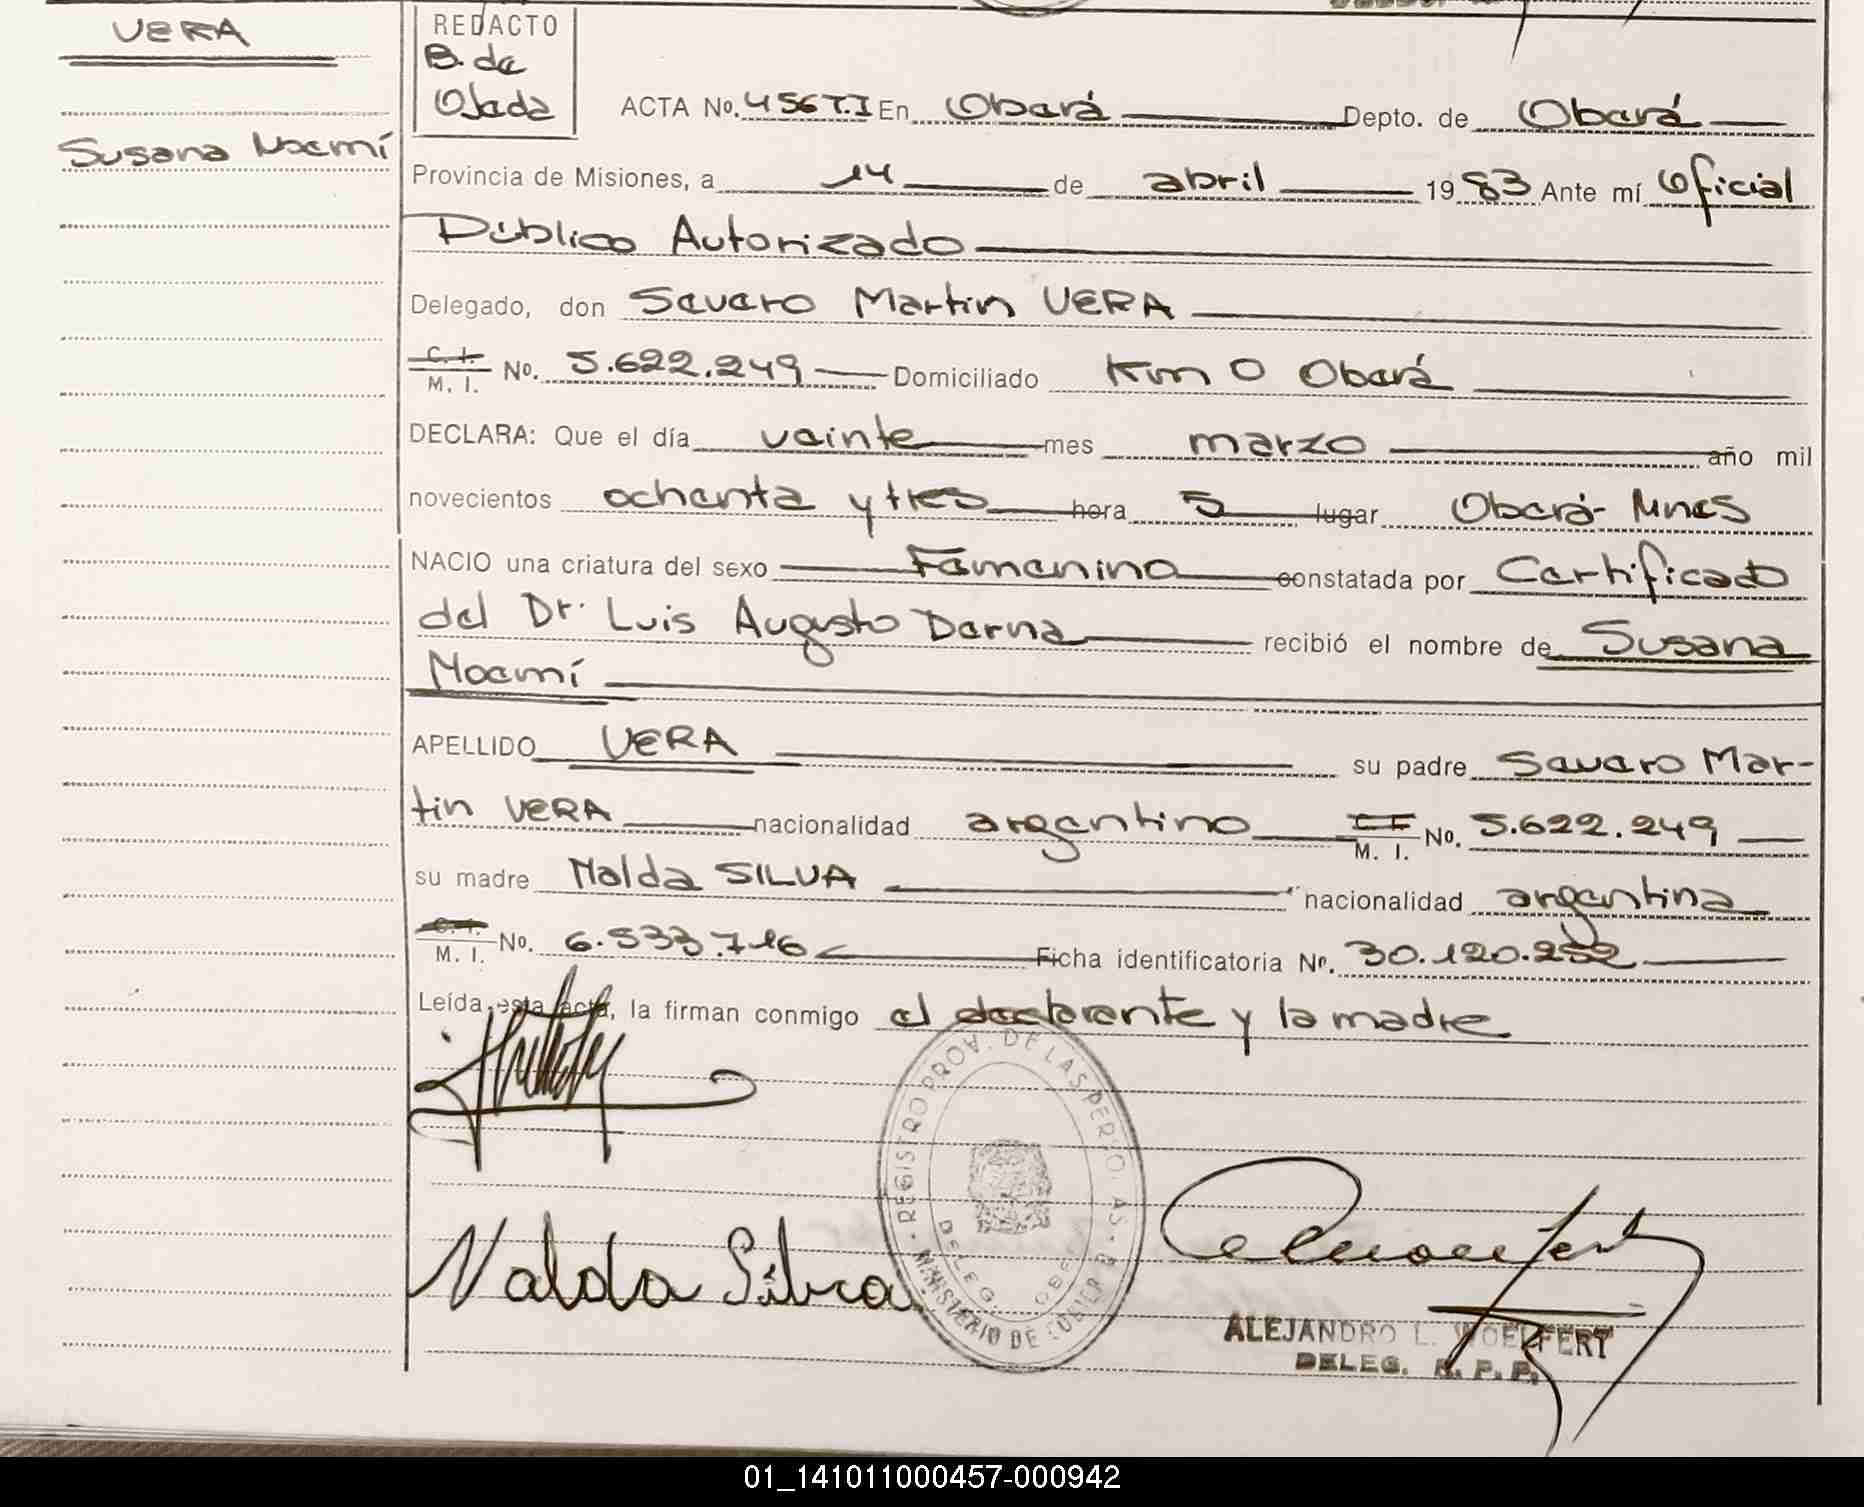 VERA
Susana Noemí
REDACTO
B. de
Ojeda
ACTA No. 456 T.I En Oberá Depto. de Oberá
Provincia de Misiones, a 14 de abril 1983 Ante mí Oficial
Publico Autorizado
Delegado, don Severo Martin VERA
C. I.
M. I. No. 5.622.249 Domiciliado Km 0 Oberá
DECLARA: Que el día veinte mes marzo año mil
novecientos ochenta y tres hora 5 lugar Oberá- Mnes
NACIO una criatura del sexo Femenino constatada por Certificado
del Dr. Luis Augusto Derna recibió el nombre de Susana
Noemí
APELLIDO VERA su padre Severo Mar-
tin VERA nacionalidad argentino M. I. No. 5.622.249
su madre Nalda SILVA nacionalidad argentina
C. I.
M. I. No. 6.533.716 Ficha identificatoria No. 30.120.252
Leída esta acta, la firman conmigo el declarante y la madre
REGISTRO PROV. DE LAS PERSONAS - MINISTERIO DE GOBIERNO
DELEG. OBERA
Nalda Silva
ALEJANDRO L. WOELFERT
DELEG. R. P. P.
01_141011000457-000942